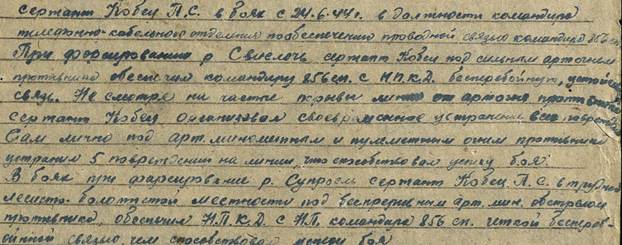 сержант Кобец П.С. в боях с 24.6.44г. в должности командира
телефонно-кабельного отделения подбеспечении проводной связью командира 856 сп.
При форсировании р. Свислочь сержант Кобец под сильным арт.огнем
противника обеспечил командиру 856 сп. с НПКД. бесперебойную, устойчив
связь. Не смотря на частые порывы линии от артогня противника
сержант Кобец организовал своевременное устранение всех поврежд
Сам лично под арт. минометным и пулеметным огнем противника
устранил 5 повреждений на линии, что способствовало успеху боя.
В боях при форсирование р. Супросль сержант Кобец П.С. в трудной
лесисто-болотистой местности под беспрерывным арт. мин. обстрелом
противника, обеспечил Н.П.К.Д. с Н.П. командира 856 сп. четкой бесперебо-
йнной связью чем способствовал успеху боя